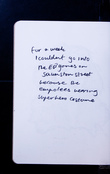 For a week
I couldnt go into
the EB games on
Swanston street
because the
employees wearing
superhero costume